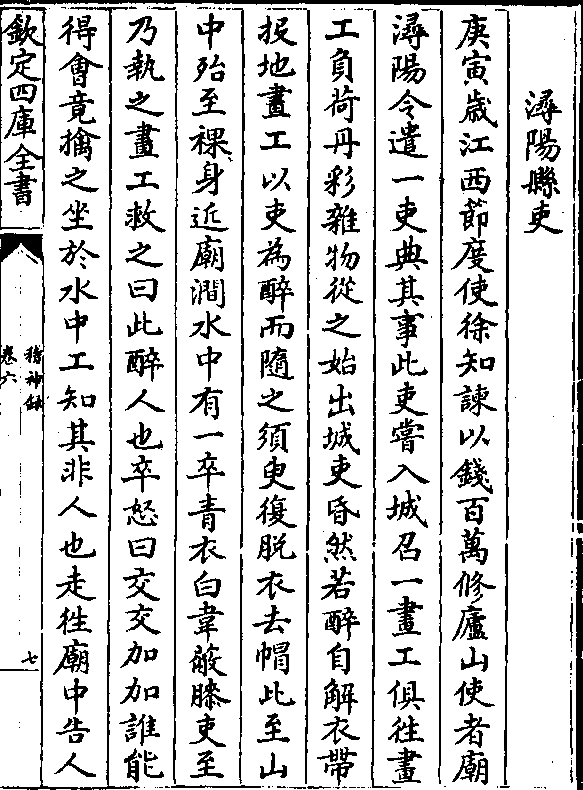 潯陽縣吏
庚寅歲江西節度使徐知諫以錢百萬修廬山使者廟
潯陽令遣一吏典其事此吏嘗入城召一畫工俱往畫
工負荷丹彩雜物從之始出城吏昏然若醉自解衣帶
投地畫工以吏為醉而隨之須臾復脫衣去帽比至山
中殆至裸身近廟澗水中有一卒青衣白韋蔽膝吏至
乃執之畫工救之曰此醉人也卒怒曰交交加加誰能
得會竟擒之坐於水中工知其非人也走往廟中告人
欽定四庫全書
稽神錄
卷六
七